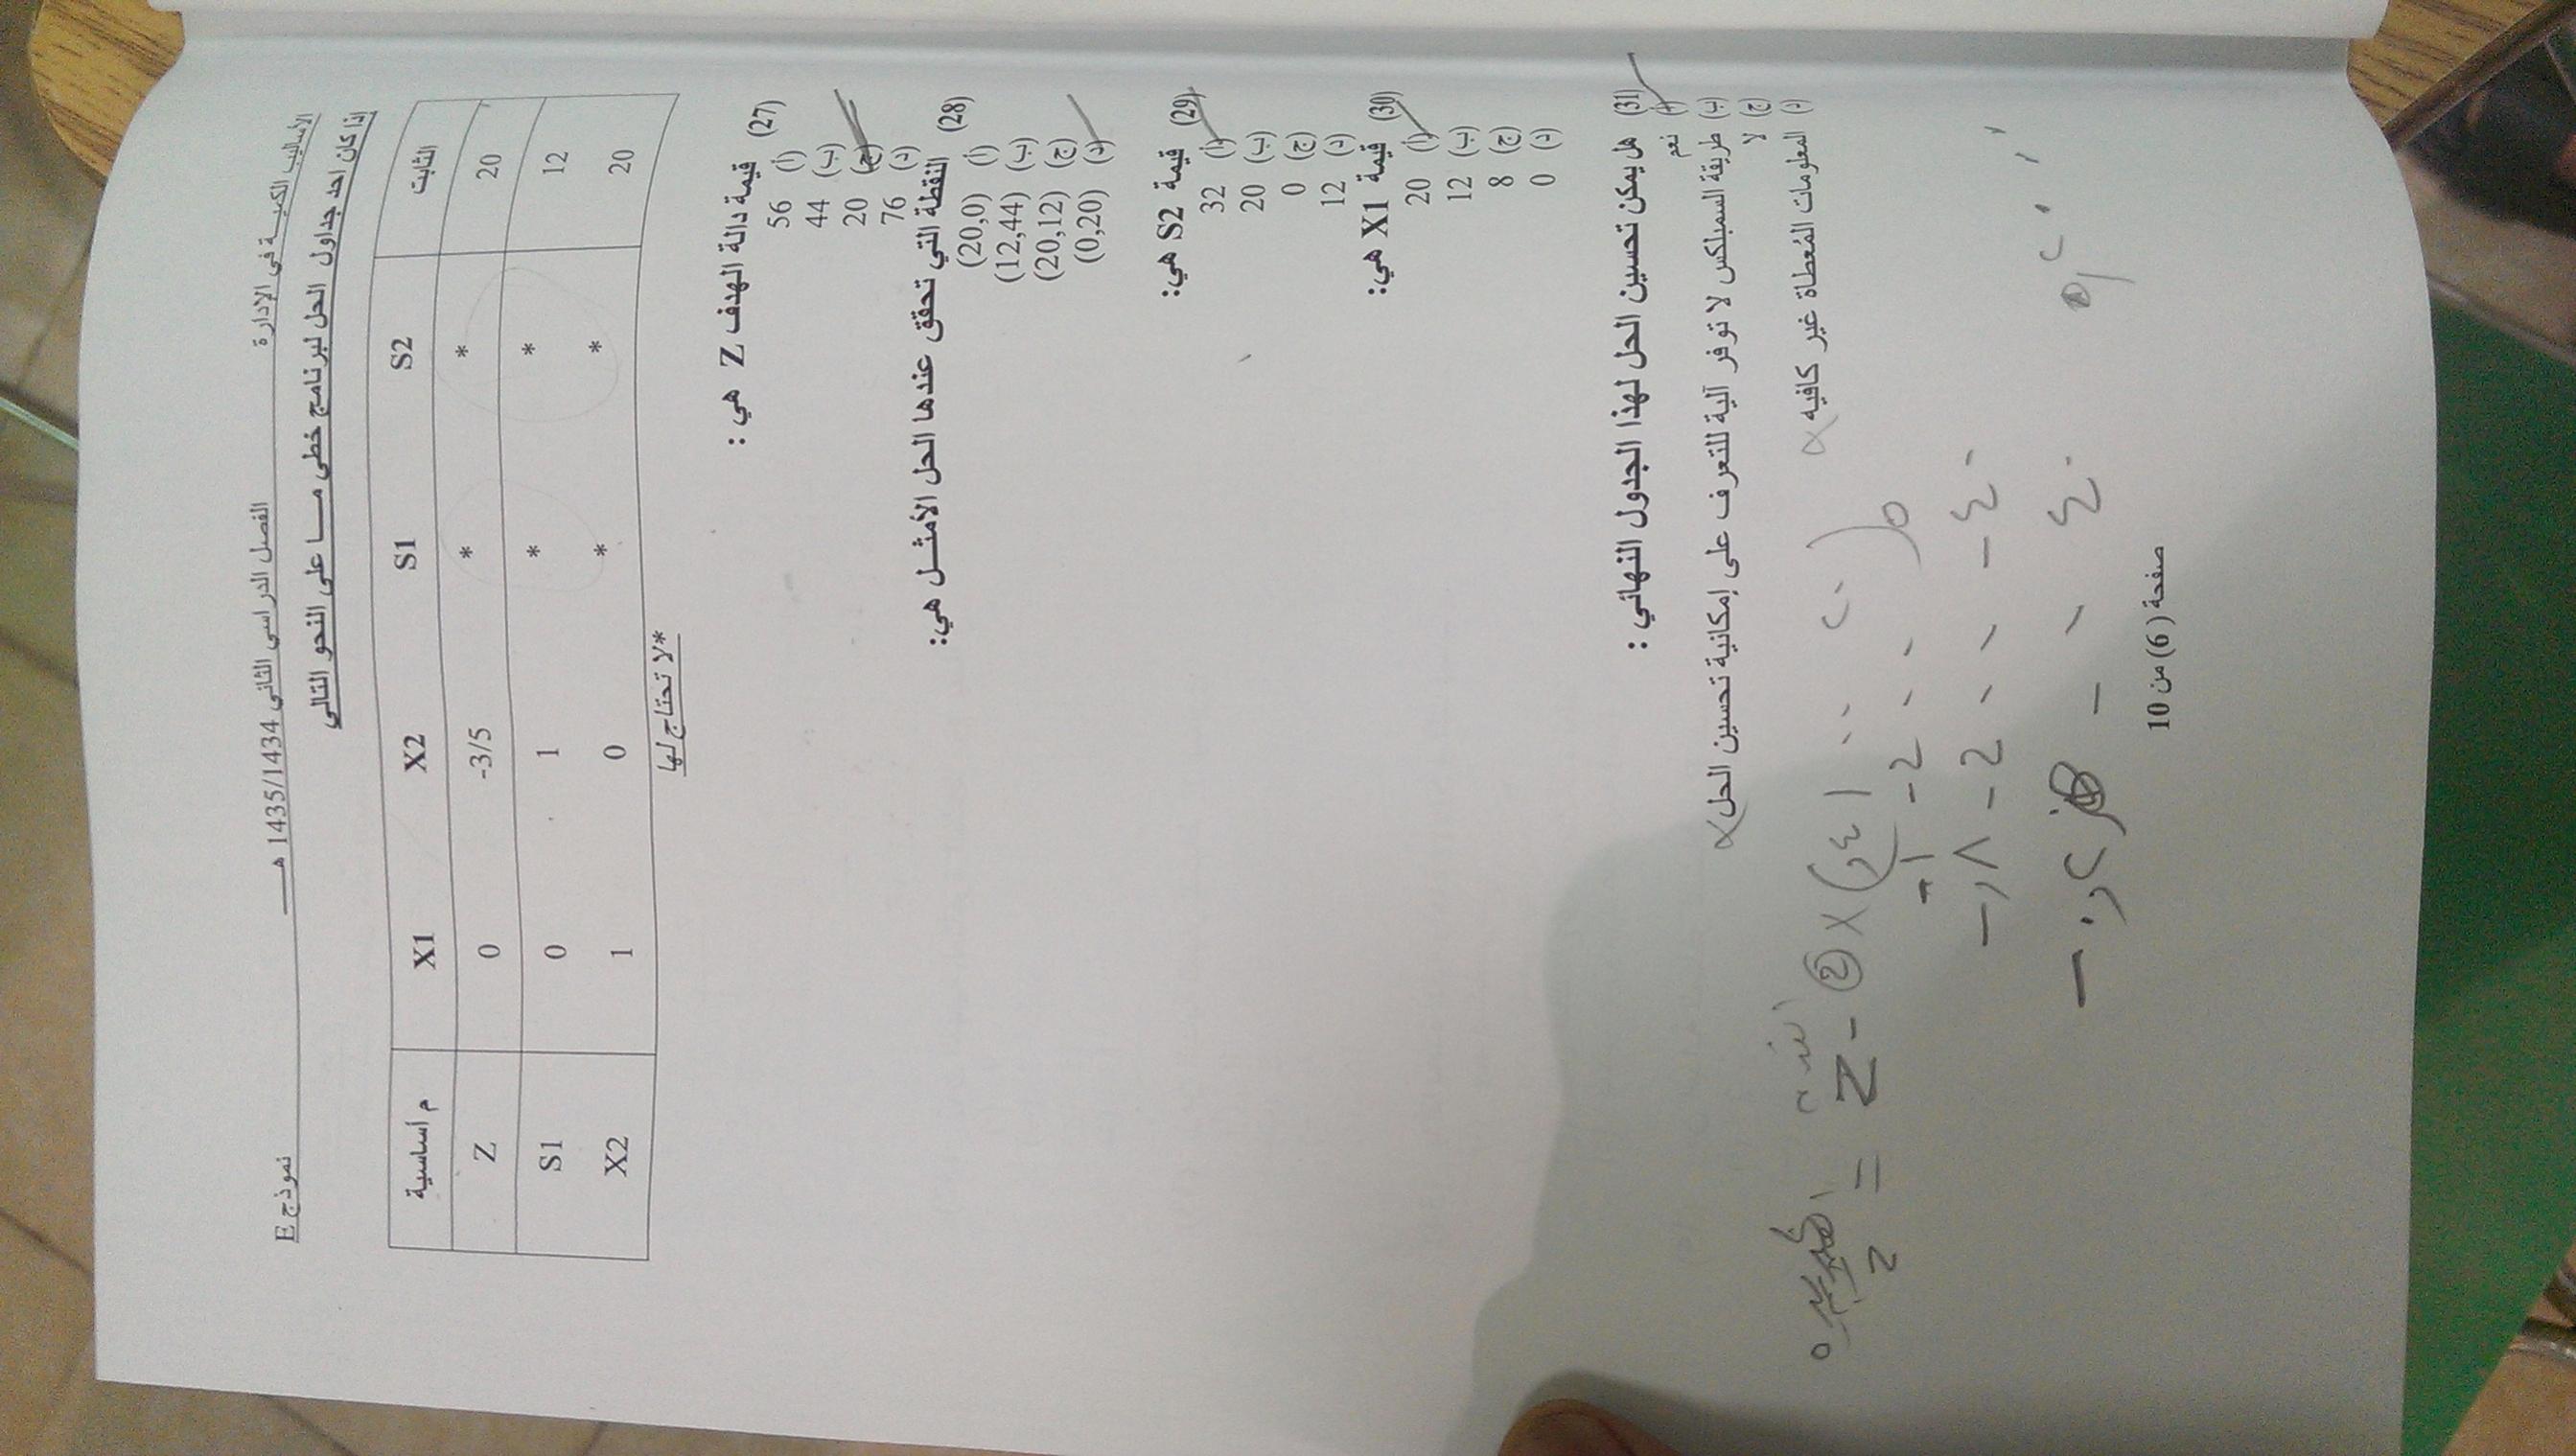 الأساليب الكمية في الإدارة الفصل الدراسي الثاني 1435/1434 هـ نموذج E
إذا كان احد جداول الحل لبرنامج خطي مـــا على النحو التالي
م أساسية X1 X2 S1 S2 الثابت
Z 0 -3/5 * * 20
S1 0 1 * * 12
X2 1 0 * * 20
*لا تحتاج لها
(27) قيمة دالة الهدف Z هي :
(أ) 56
(ب) 44
(ج) 20
(د) 76
(28) النقطة التي تحقق عندها الحل الأمثــل هي:
(أ) (20,0)
(ب) (12,44)
(ج) (20,12)
(د) (0,20)
(29) قيمة S2 هي:
(أ) 32
(ب) 20
(ج) 0
(د) 12
(30) قيمة X1 هي:
(أ) 20
(ب) 12
(ج) 8
(د) 0
(31) هل يمكن تحسين الحل لهذا الجدول النهائي :
(أ) نعم
(ب) طريقة السمبلكس لا توفر آلية للتعرف على إمكانية تحسين الحل
(ج) لا
(د) المعلومات المُعطاة غير كافيه
صفحة (6) من 10